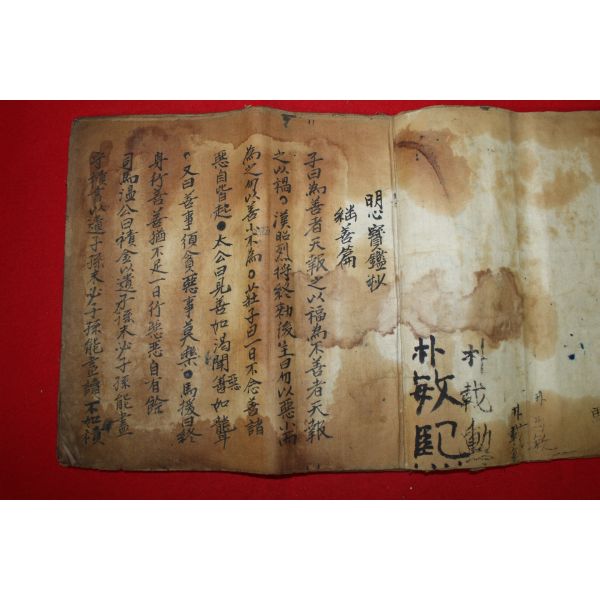 朴載勳
朴敏熙
明心寶鑑抄
継善篇
子曰為善者天報之以福為不善者天報
之以禍○漢昭烈將終勅後生曰勿以惡小而
為之勿以善小不為○莊子曰一日不念善諸
惡自皆起●太公曰見善如渴聞善如聾
惡
○又曰善事須貪惡事莫樂○馬援曰終
身行善善猶不足一日行惡惡自有餘
司馬溫公曰積金以遺子孫未必子孫能盡
守積書以遺子孫未必子孫能盡讀不如積